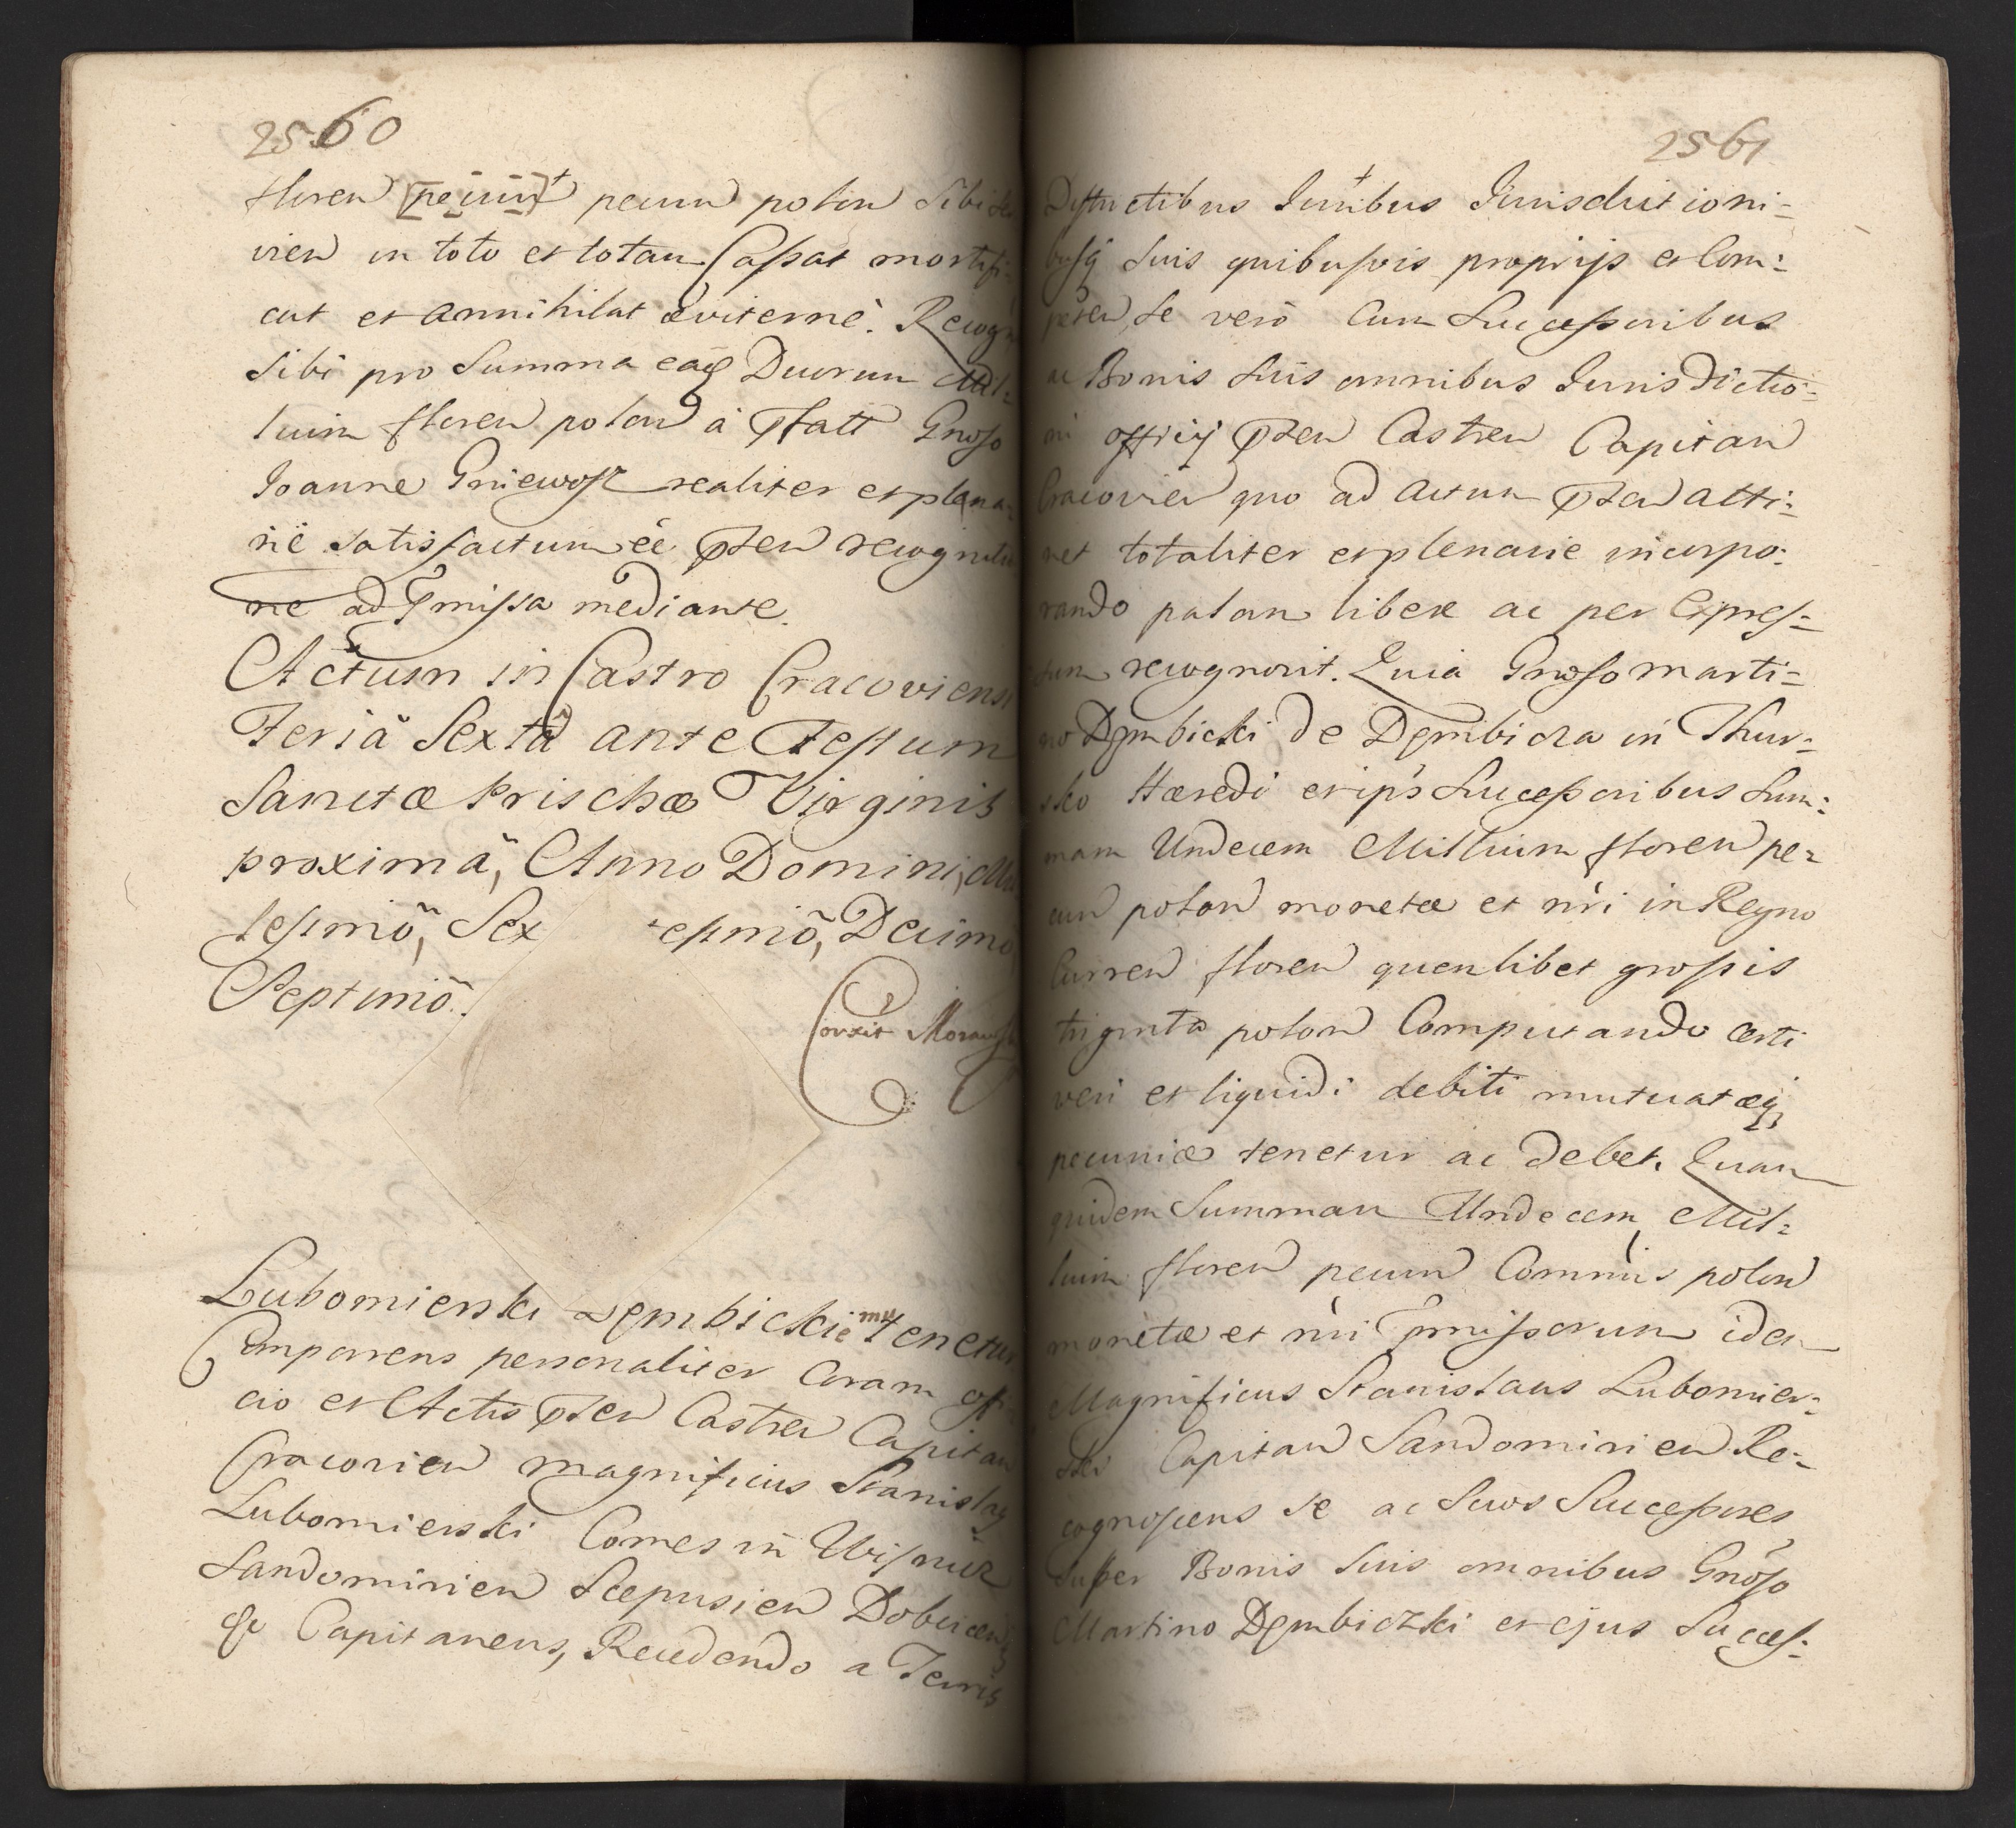 2560
floren [pecun]+ pecun polon sibi ser
vien in toto et totam Cassat mortifi-
cat et annihilat æviternè. Recogn
sibi pro Summa eaq Duorum Mil-
lium floren polon à Pfatt Gnoso
Joanne Gniewosz realiter et plena-
riè satisfactum eé pñten recognitio
ne ad pmissa mediante.
Actum in Castro Cracoviensi
Feriâ Sextâ ante Festum
Sanctæ Prischæ Virginis
proximâ, Anno Domini, Mil
lesimõ, Sex tesimõ, Decimo
Septimõ.
Corrxit Morawski
Lubomierski Dembickiemu tenetur
Comparens personaliter Coram offi
cio et Actis pñten Castren Capitan
Cracovien magnificus Stanislaq
Lubomierski Comes in Wisnicz
Sandomirien Scepusien Dobicen
qe Capitaneus, Recedendo a Terris
2561
Districtibus Juribus Jurisdictioni-
busq suis quibusvis proprijs et Com-
peten, se verò Cum Successoribus
ac Bonis suis omnibus Jurisdictio-
ni officij pñten Castren Capitan
Cracovien quo ad actum pñten atti-
net totaliter et plenarie incorpo-
rando palam libere ac per expres-
sum recognovit. Quia Gnoso marti-
no Dembicki de Dembicza in Thur-
sko Hæredi et ipš Successoribus Sum-
mam Undecem Millium floren pe-
cun polon monetæ et nri in Regno
Curren floren quenlibet grossis
triginta polon Computando certi
veri et liquidi debiti mutuatæq
pecuniæ tenetur ac debet. Quam
quidem Summam Undecem Mil-
lium floren pecun Commis polon
monetæ et nri pmissorum idem
Magnificus Stanislaus Lubomier-
ski Capitan Sandomirien Re-
cognoscens se ac Suos Successores
super Bonis suis omnibus Gnoso
Martino Dembiczki et ejus Succes-